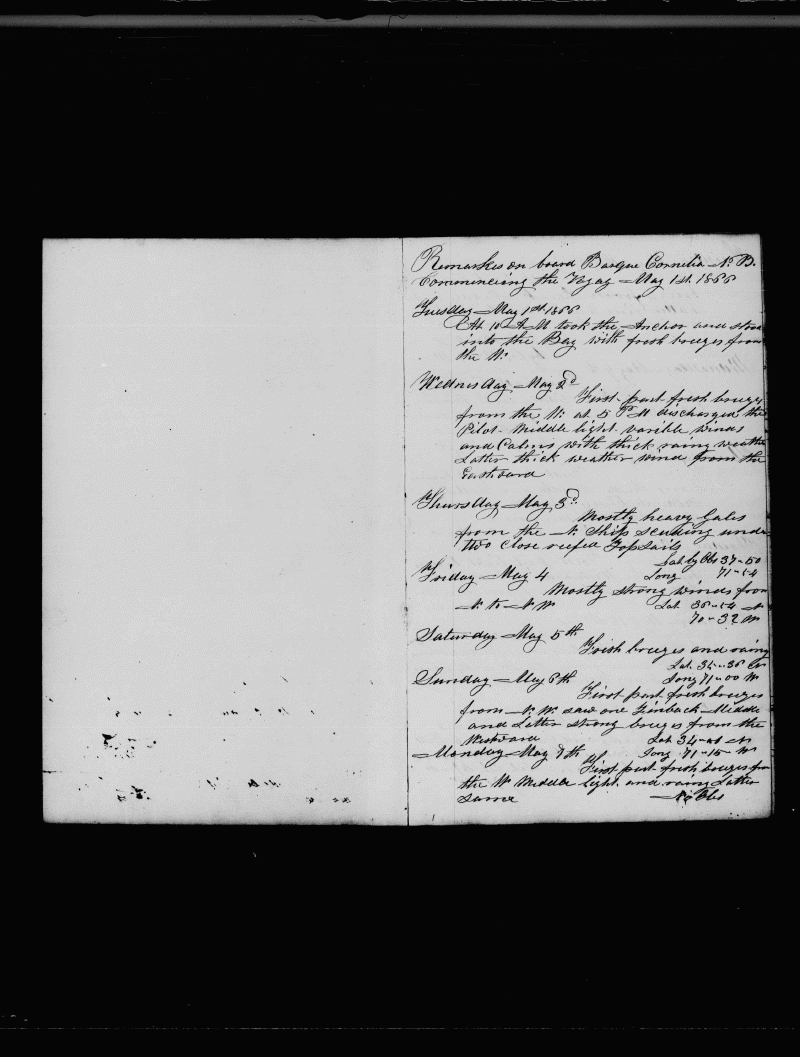 Remarks on board Barque Cornelia N. B.
Commencing the Voyag May 1st 1866
Tuesday May 1st 1866
At 10 A M took the Anchor and stood
into the Bay with fresh breezes from
the W.
Wednesday May 2d
First part fresh breezes
from the W. at 5 P M discharged the
Pilot Middle light varible winds
and Calms with thick rainy weather
Latter thick weather wind from the
Eastward
Thursday May 3d
Mostly heavy Gales
from the N. Ship scuding under
two close reefed Topsails
Lat by Obs 37-50
Friday May 4
Long 71-54
Mostly strong winds from
N. to N W
Lat 36-54 N
70-32 W
Saturday May 5th
Fresh breezes and rainy
Lat 35-36
Sunday May 6th
Long 71-00 W
First part fresh breezes
from N. W. saw one Finback Middle
and Latter strong breezes from the
Westward
Lat 34 N
Monday May 7th
Long 71-15 W
First part fresh breezes from
the W Middle light and rainy Latter
same
No Obs